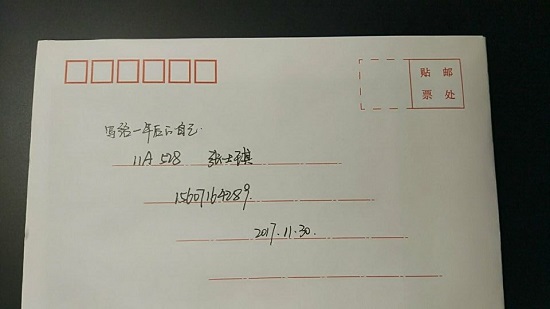 贴 邮
票 处
写给一年后的自己.
11A 528 张士琪
15607164289
2017.11.30.